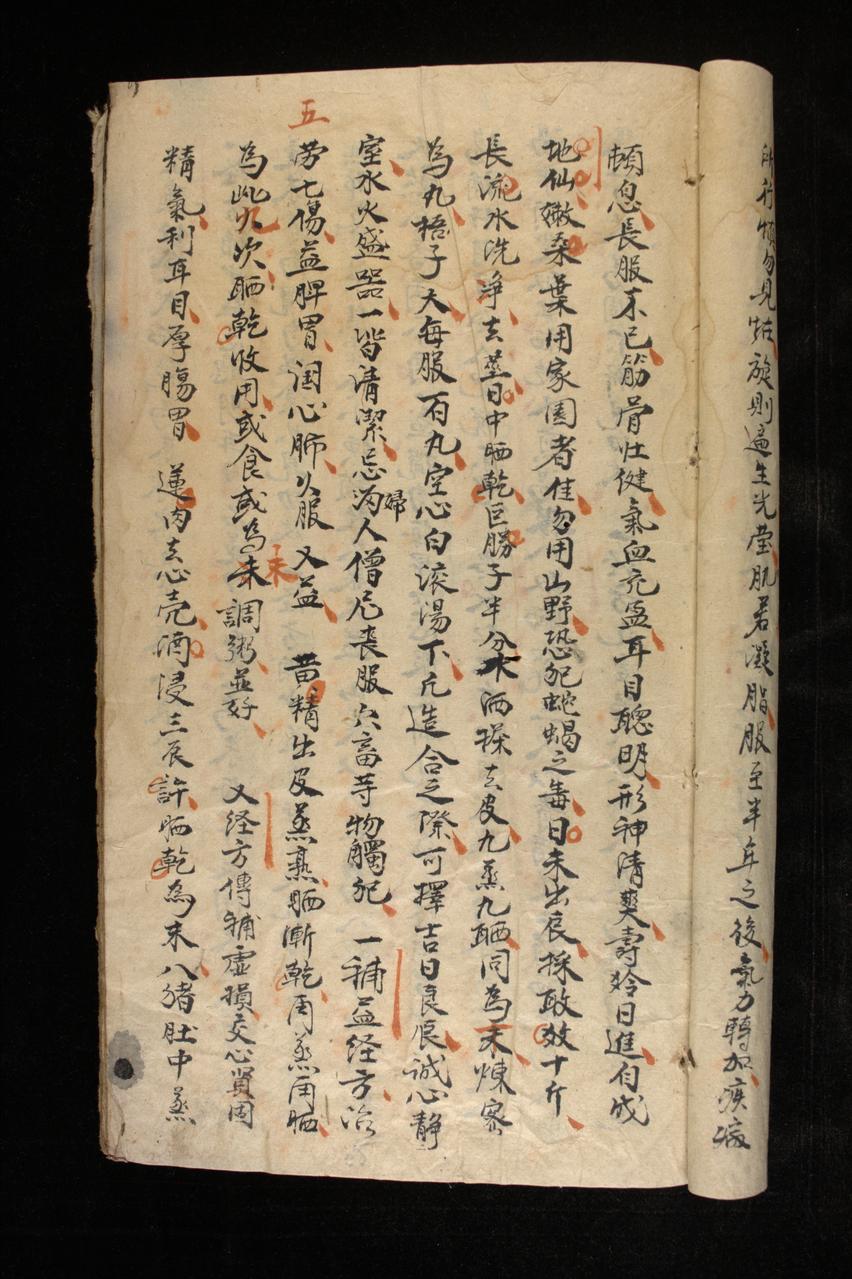 所行慎勿見 旋則遍生光瑩肌若凝脂服至半年之後氣力轉加疾病
頓息長服不已筋骨壮健氣血充盈耳目聰明形神清爽壽齡日進自成
地仙嫩桑葉用家園者佳勿用山野恐犯蛇蝎之毒日未出辰採取 十斤
長流水洗净去莖日中晒乾巨勝子半分 洒 去皮九蒸九晒同為末煉密
為丸梧子大每服百丸空心白滚湯下凡造合之際可擇吉日良辰誠心静
室水火盛器一皆清潔忌 婦人僧尼喪服六畜等物觸犯 一補益経方治
五
劳七傷益脾胃潤心肺久服又益 黄精出皮蒸熟晒漸乾再蒸再晒
為此九次晒乾收用或食或為末調粥並好 又経方傳補虚損交心賢固
末
精氣利耳目厚腸胃 蓮肉去心壳酒浸三辰許晒乾為末入猪肚中蒸